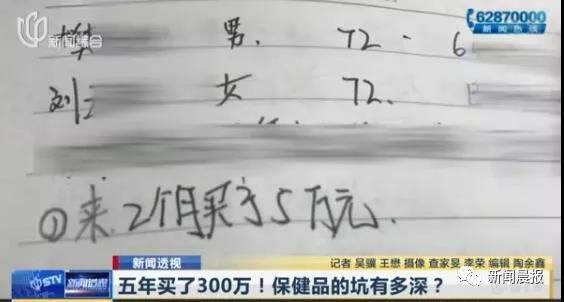 新闻综合
62870000
新闻热线
樊 男. 72-6
刘 女 72.
①来.2个月买了5万元.
新闻透视
记者 吴骥 王懋 摄像 查家旻 李荣 编辑 陶余鑫
STV
新闻透视
五年买了300万！保健品的坑有多深？
新闻晨报